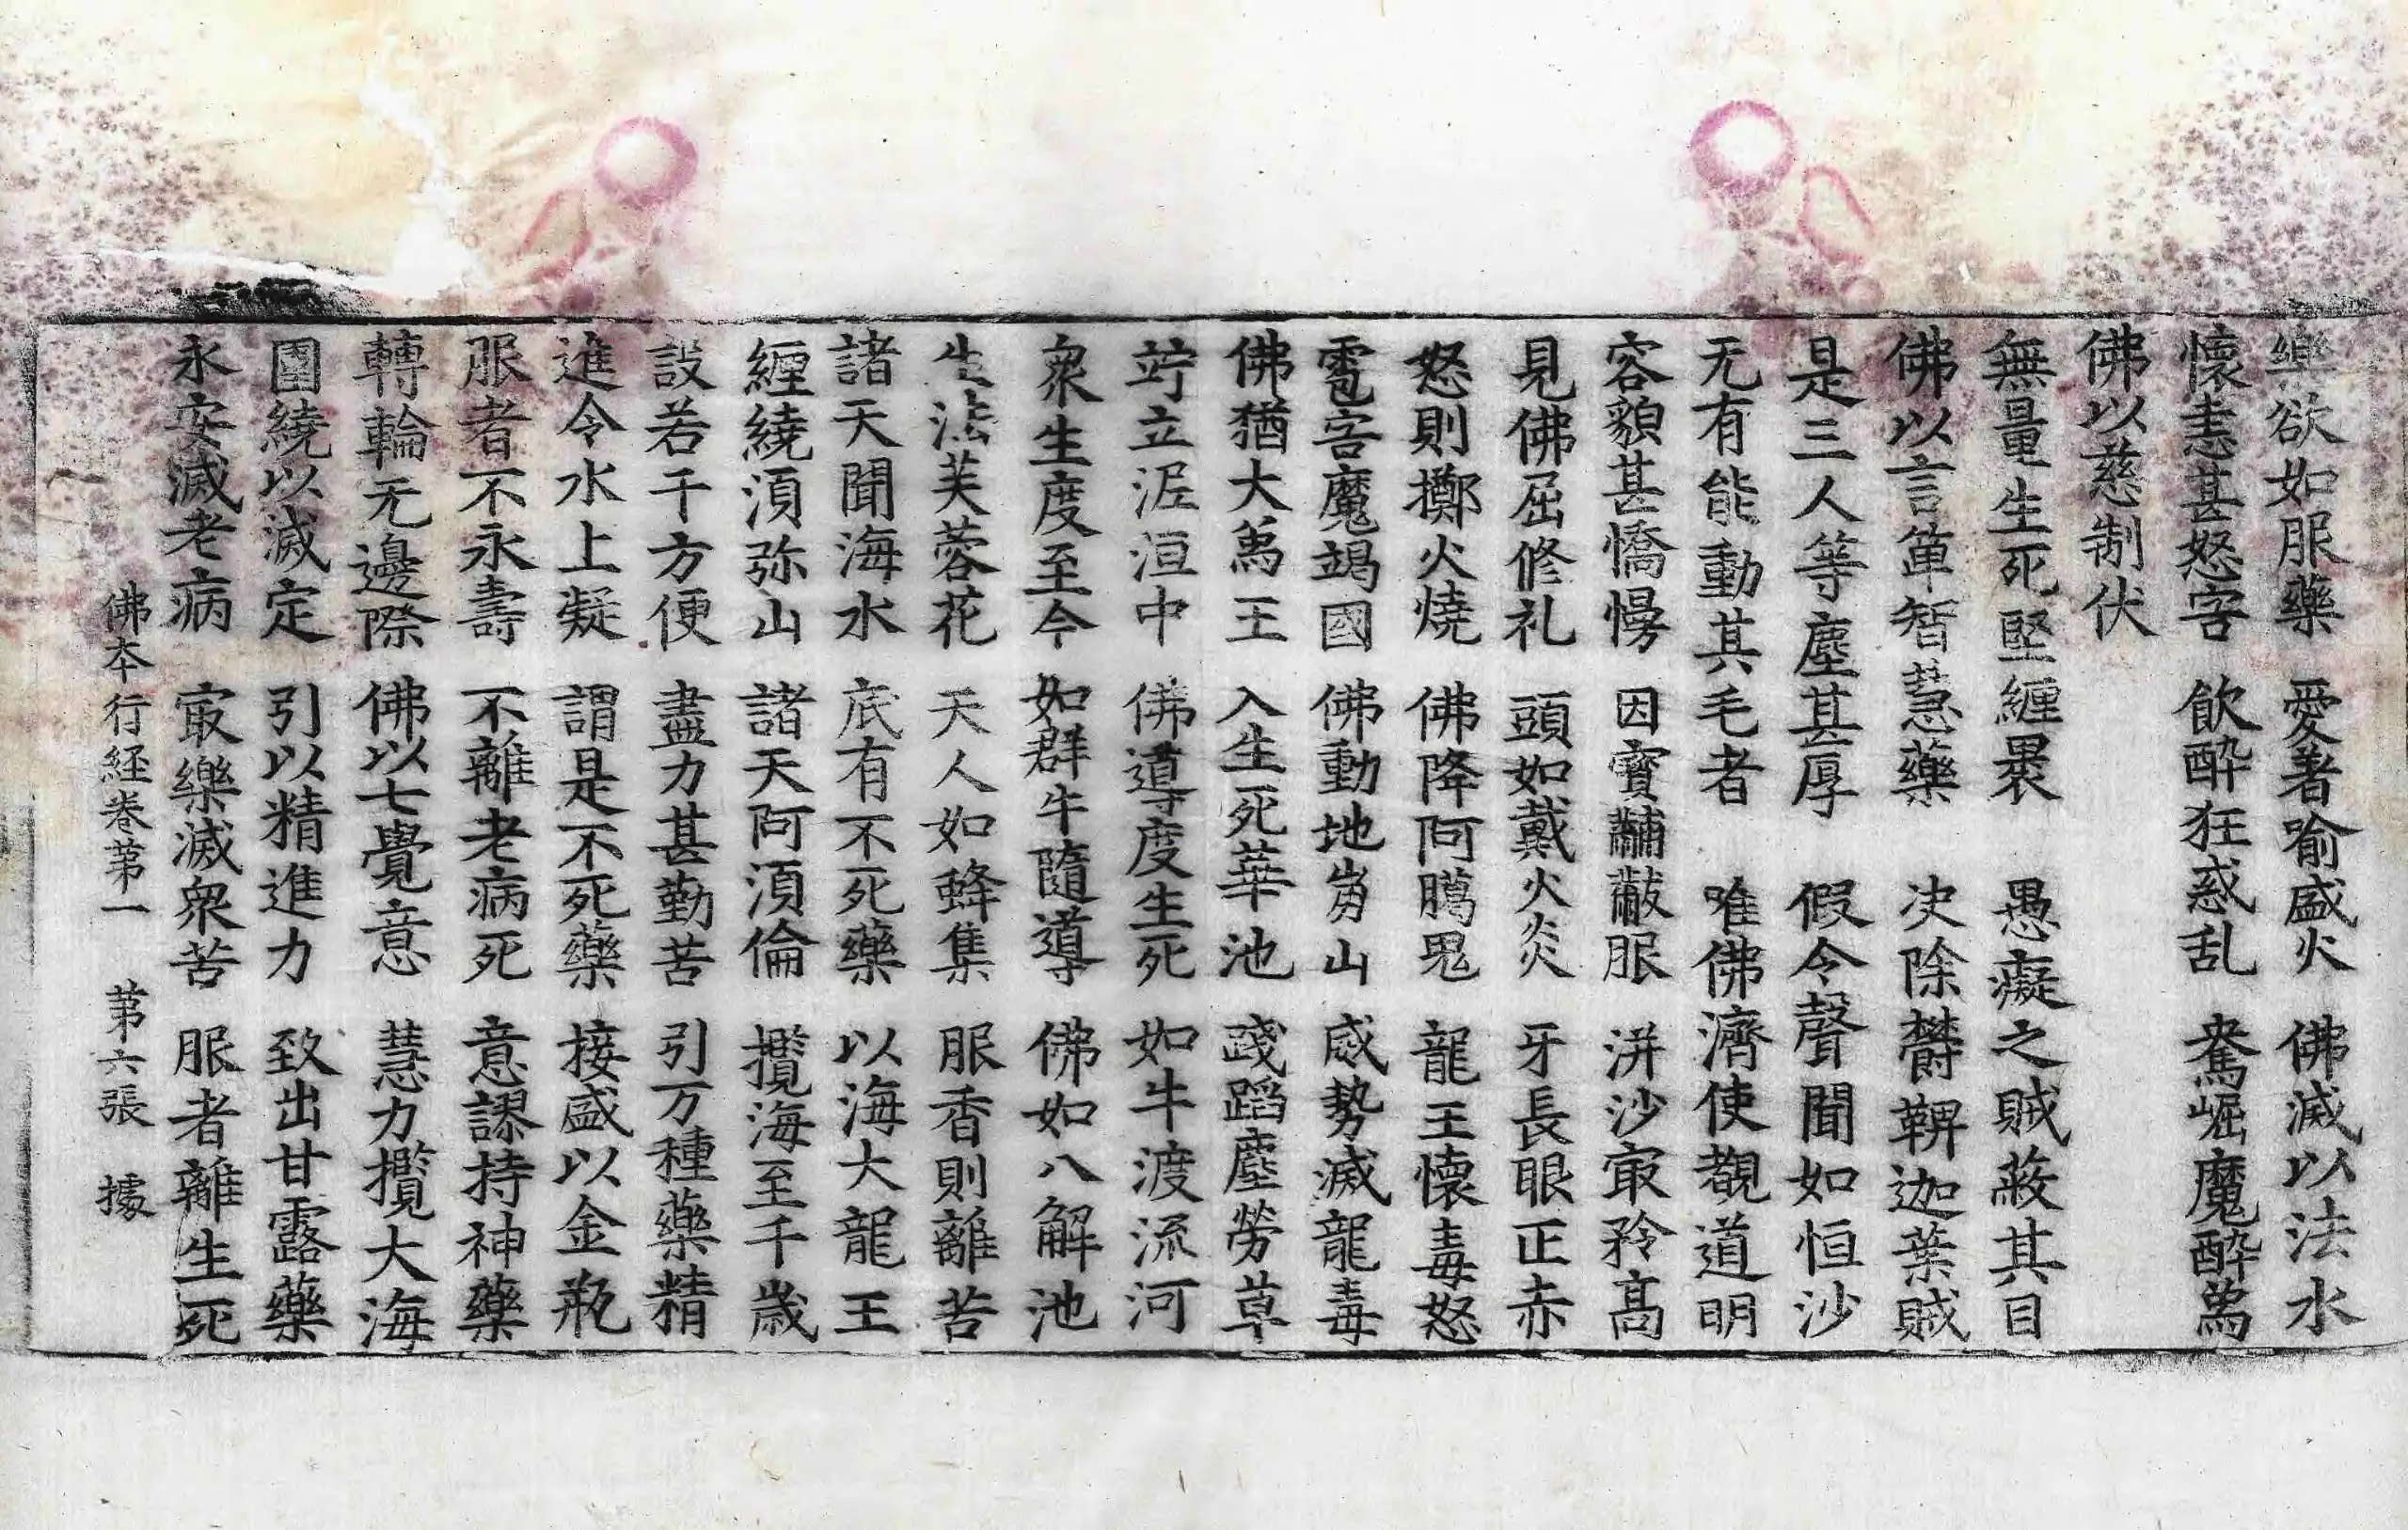 樂欲如服藥 愛著喻盛火 佛滅以法水
懷恚甚怒害 飲酔狂惑乱 鴦崛魔酔為
佛以慈制伏
無量生死堅纏褁 愚癡之賊蔽其目
佛以言箄智慧藥 决除欝鞞迦葉賊
是三人等塵甚厚 假令聲聞如恒沙
无有能動其毛者 唯佛濟使覩道明
容貌甚憍慢 因寶黼黻服 洴沙㝡矜髙
見佛屈修礼 頭如戴火炎 牙長眼正赤
怒則擲火燒 佛降阿臈鬼 龍王懷毒怒
雹害魔竭國 佛動地崩山 威勢滅龍毒
佛猶大為王 入生死華池 踐蹈塵勞草
竚立泥洹中 佛導度生死 如牛渡流河
衆生度至今 如群牛隨導 佛如八解池
生法芙蓉花 天人如蜂集 服香則離苦
諸天聞海水 底有不死藥 以海大龍王
纏繞湏弥山 諸天阿湏倫 攬海至千歲
設若干方便 盡力甚勤苦 引万種藥精
進令水上凝 謂是不死藥 接盛以金瓶
服者不永壽 不離老病死 意謬持神藥
轉輪无邊際 佛以七覺意 慧力攬大海
圍繞以滅定 引以精進力 致出甘露藥
永安滅老病 㝡樂滅衆苦 服者離生死
佛本行経卷苐一 苐六張 據